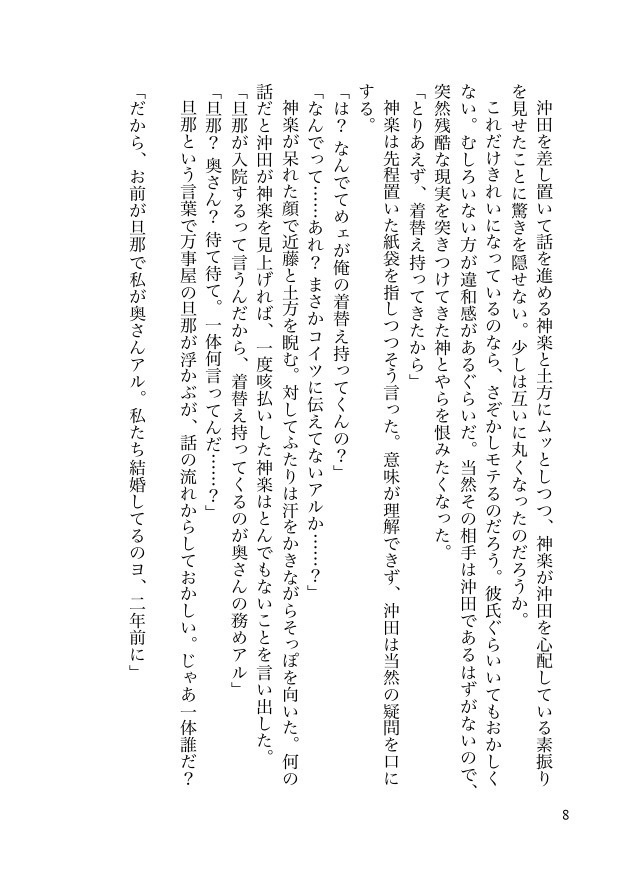 沖田を差し置いて話を進める神楽と土方にムッとしつつ、神楽が沖田を心配している素振り
を見せたことに驚きを隠せない。少しは互いに丸くなったのだろうか。
これだけきれいになっているのなら、さぞかしモテるのだろう。彼氏ぐらいいてもおかしく
ない。むしろいない方が違和感があるぐらいだ。当然その相手は沖田であるはずがないので、
突然残酷な現実を突きつけてきた神とやらを恨みたくなった。
「とりあえず、着替え持ってきたから」
神楽は先程置いた紙袋を指しつつそう言った。意味が理解できず、沖田は当然の疑問を口に
する。
「は？ なんでてめェが俺の着替え持ってくんの？」
「なんでって……あれ？ まさかコイツに伝えてないアルか……？」
神楽が呆れた顔で近藤と土方を睨む。対してふたりは汗をかきながらそっぽを向いた。何の
話だと沖田が神楽を見上げれば、一度咳払いした神楽はとんでもないことを言い出した。
「旦那が入院するって言うんだから、着替え持ってくるのが奥さんの務めアル」
「旦那？ 奥さん？ 待て待て。一体何言ってんだ……？」
旦那という言葉で万事屋の旦那が浮かぶが、話の流れからしておかしい。じゃあ一体誰だ？
「だから、お前が旦那で私が奥さんアル。私たち結婚してるのヨ、二年前に」
8